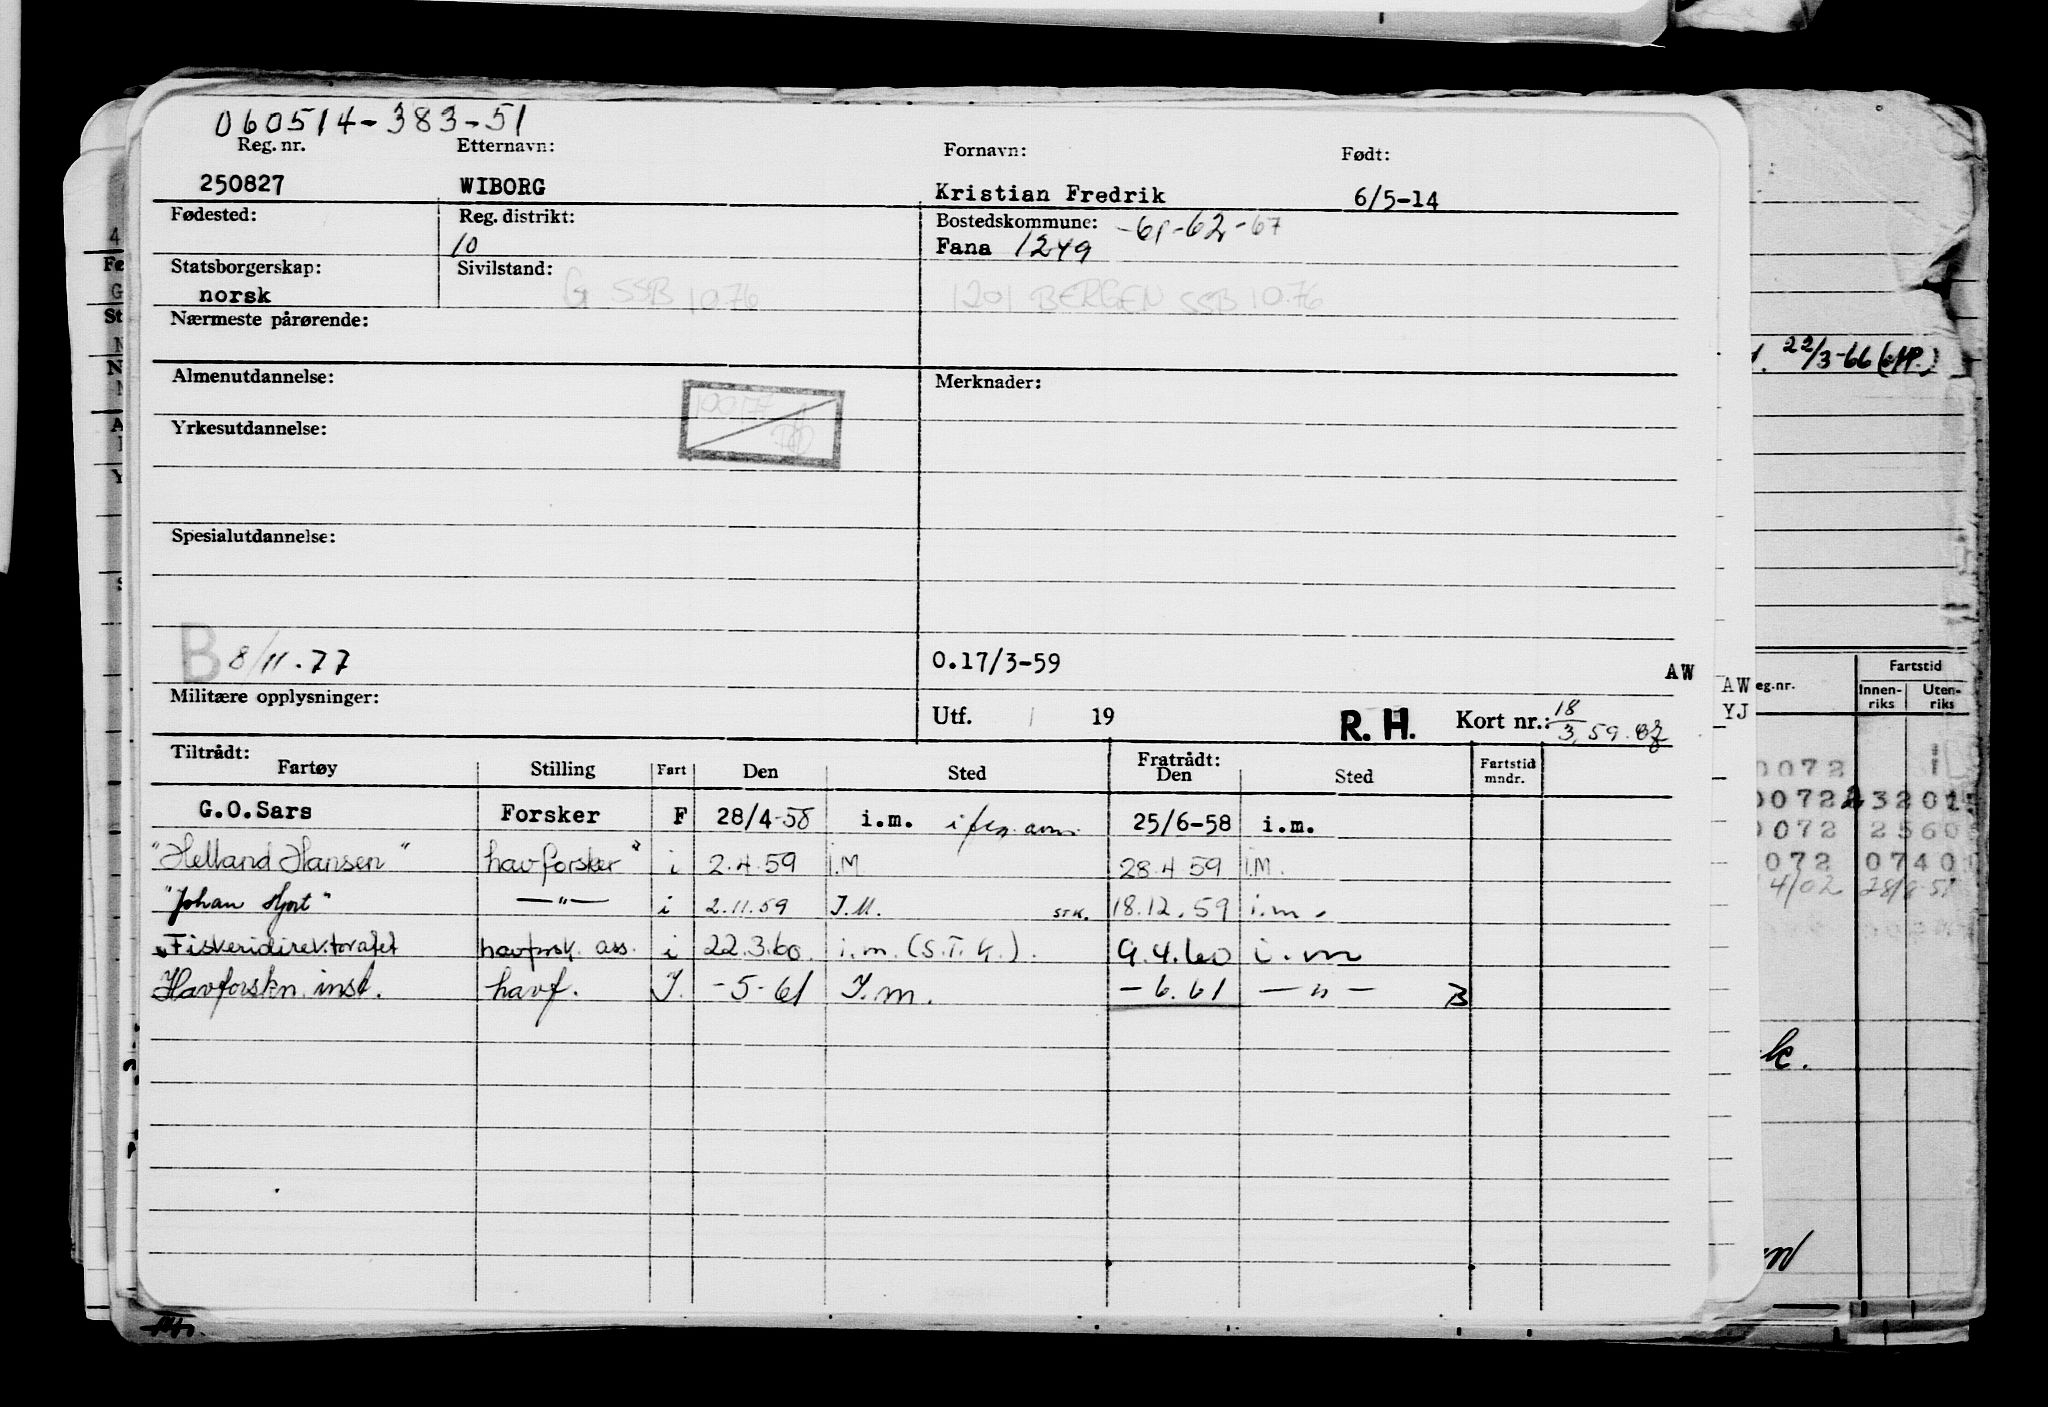 060514-383-51
Reg. nr. Etternavn: Fornavn: Født:
250827 WIBORG Kristian Fredrik 6/5-14
Fødested: Reg. distrikt: Bostedskommune: -61-62-67
10 Fana 1249
Statsborgerskap: Sivilstand:
norsk G SSB 10.76 1201 BERGEN SSB 10.76
Nærmeste pårørende:
Almenutdannelse: Merknader:
Yrkesutdannelse:
Spesialutdannelse:
B 8/11.77 O.17/3-59 AW
Militære opplysninger: Utf. 19 R. H. Kort nr.: 18/3.59
Tiltrådt: Fratrådt:
Fartøy Stilling Fart Den Sted Den Sted Fartstid mndr.
G.O.Sars Forsker F 28/4-58 i.m. 25/6-58 i.m.
"Helland Hansen" havforsker" i 2.4.59 I.M 28.4.59 I.M.
"Johan Hjort" —"— i 2.11.59 I.M. STK. 18.12.59 i.m.
Fiskeridirektoratet havforsk. ass. i 22.3.60. i.m. (S.T.K.). 9.4.60 i.m
Havforskn. inst. havf. I. -5-61 I.m. -6.61 —"— B
22/3-66
AW
YJ
eg.nr. Fartstid
Innen-riks Uten-riks
0072
0072 3201
0072 2560
072 0740
4/02
k.